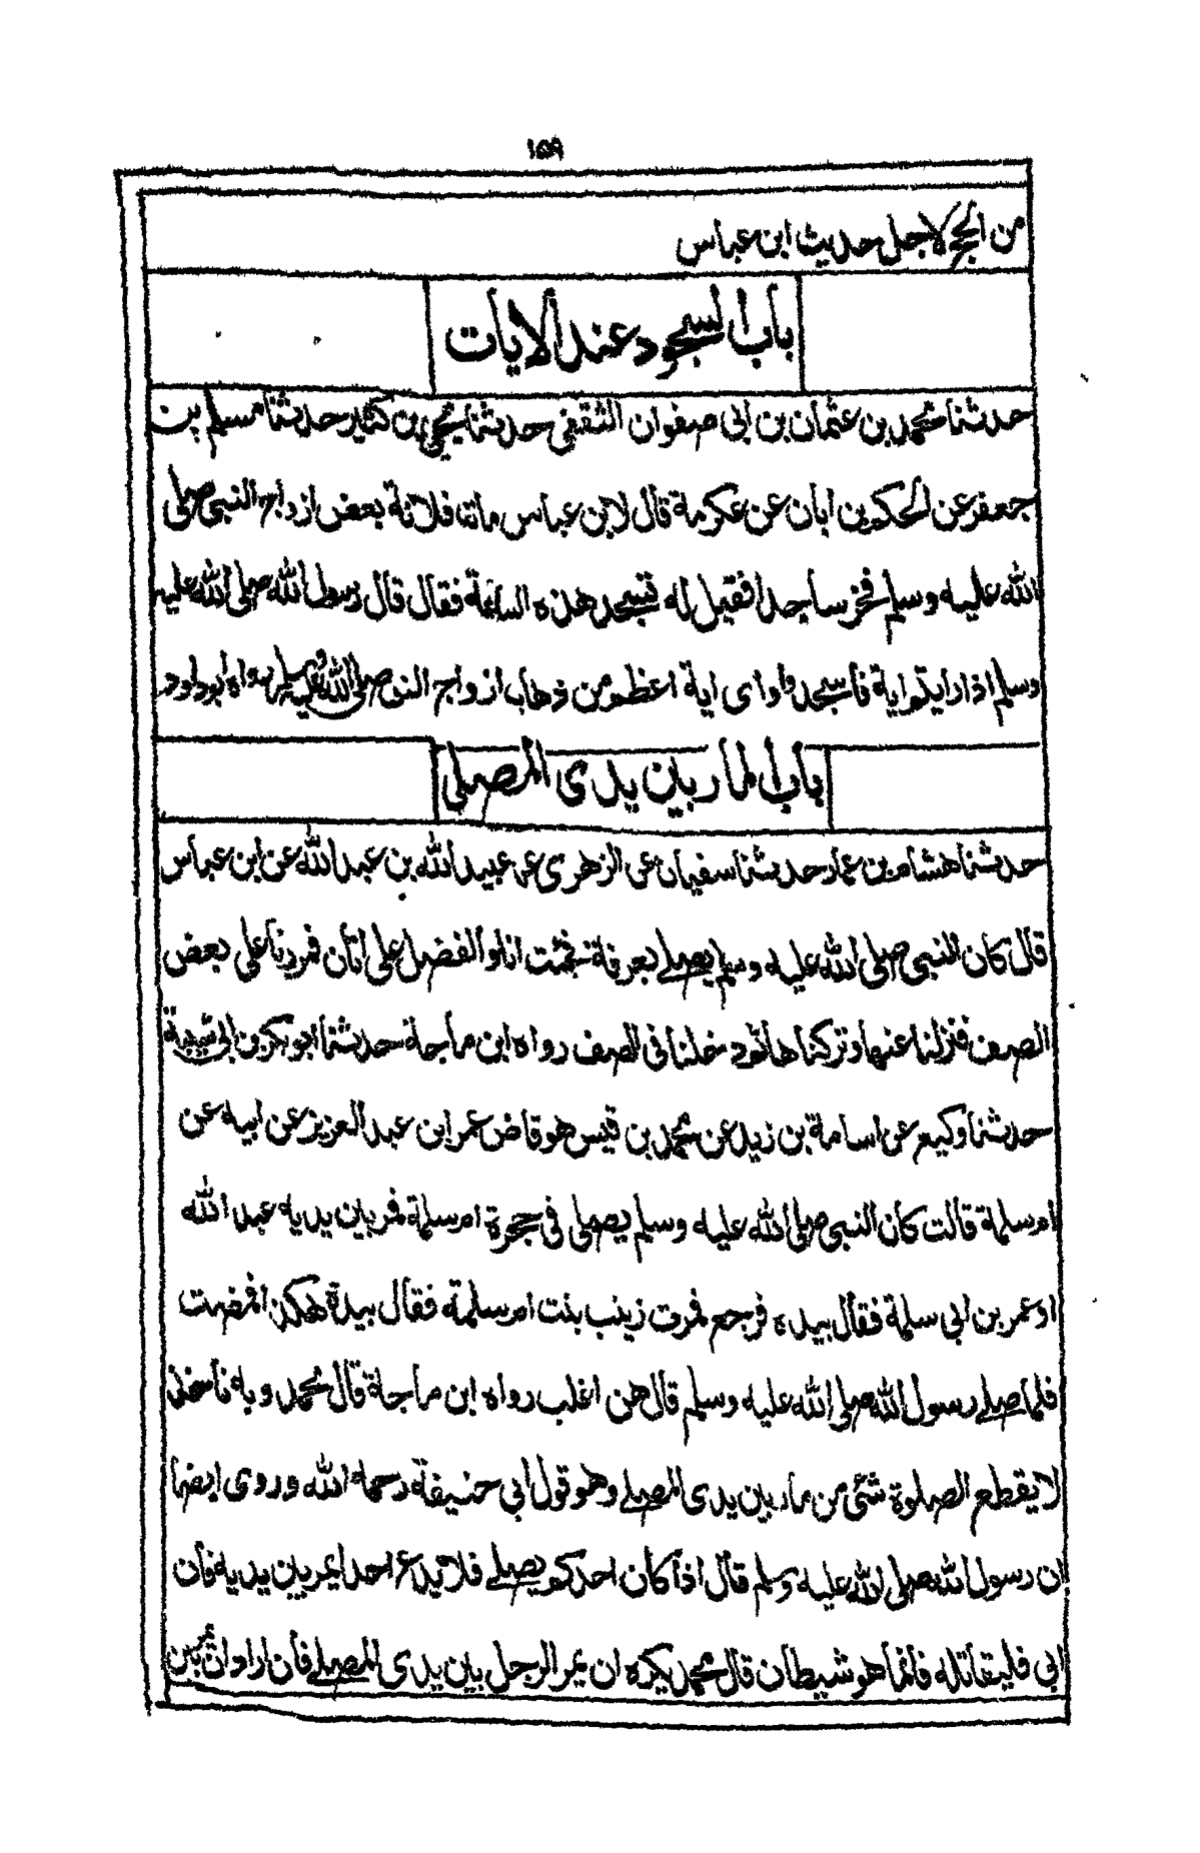 ۱۵۹
من الحج لاجل حديث ابن عباس
باب السجود عند الايات
حدثنا محمد بن عثمان بن ابي صفوان الثقفي حدثنا يحيى بن كثير حدثنا مسلم بن
جعفر عن الحكم بن ابان عن عكرمة قال لابن عباس ماتت فلانة بعض ازواج النبي صلى
الله عليه وسلم فخر ساجدا فقيل له تسجد هذه الساعة فقال قال رسول الله صلى الله عليه
وسلم اذا رايتم اية فاسجدوا واى اية اعظم من ذهاب ازواج النبي صلى الله عليه وسلم رواه ابو داود
باب المار بين يدى المصلى
حدثنا هشام بن عمار حدثنا سفيان عن الزهرى عن عبيد الله بن عبد الله عن ابن عباس
قال كان النبي صلى الله عليه وسلم يصلے بعرفة فجئت انا والفضل على اتان فمررنا على بعض
الصف فنزلنا عنها وتركناها ثم دخلنا فى الصف رواه ابن ماجة حدثنا ابو بكر بن ابي شيبة
حدثنا وكيع عن اسامة بن زيد عن محمد بن قيس هو قاض عمر ابن عبد العزيز عن ابيه عن
ام سلمة قالت كان النبي صلى الله عليه وسلم يصلى فى حجرة ام سلمة فمر بين يديه عبد الله
او عمر بن ابي سلمة فقال بيده فرجع فمرت زينب بنت ام سلمة فقال بيدة هكذا فمضت
فلما صلے رسول الله صلى الله عليه وسلم قال هن اغلب رواه ابن ماجة قال محمد وبه ناخذ
لا يقطع الصلوة شئ من مار بين يدى المصلے وهو قول ابي حنيفة رحمه الله وروى ايضا
ان رسول الله صلى الله عليه وسلم قال اذا كان احدكم يصلے فلا يدع احدا يمر بين يديه فان
ابي فليقاتله فانما هو شيطان قال محمد يكره ان يمر الرجل بين يدى المصلے فان اراد ان يمر بين